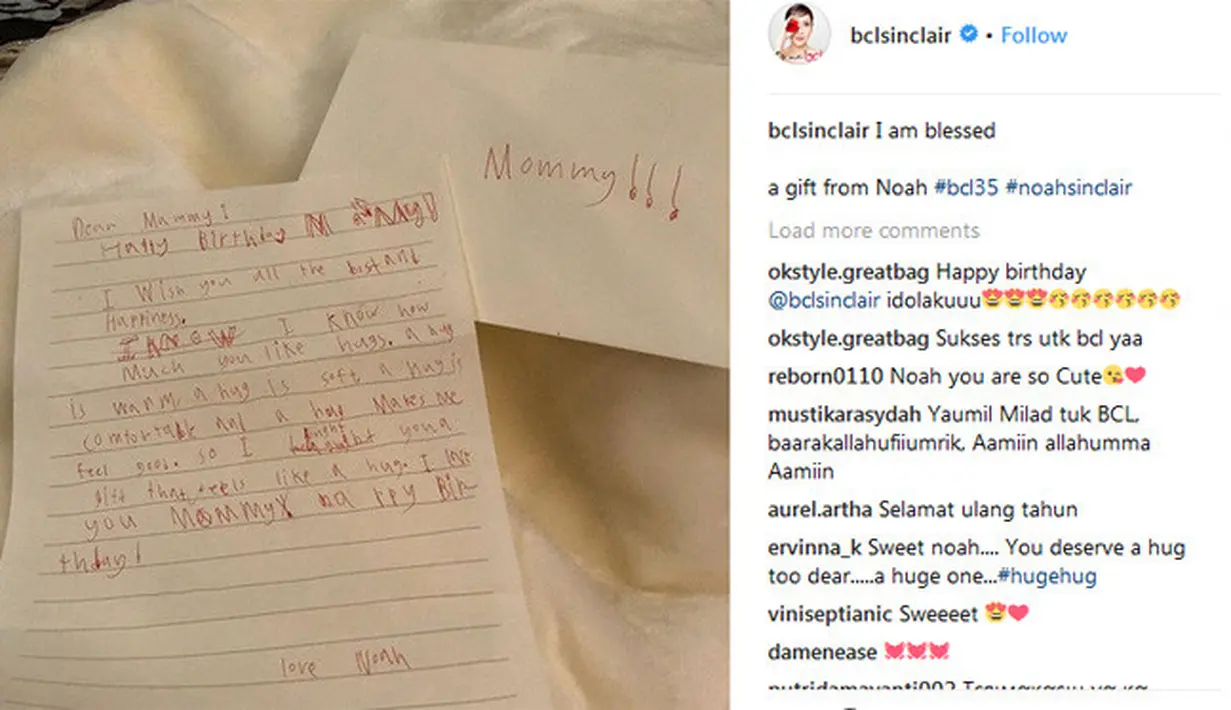 Mommy!!!
Dear Mammy!
Happy Birthday M aMMy!
I Wish you all the best and
Happiness.
I know I know how
Much you like hugs. a hug
is warm, a hug is soft a hug is
comfortable and a hug Makes me
feel good. so I
bought you a
gift that feels like a hug. I love
you MOMMY Ha ppy Bir
thday!
love Noah
bclsinclair • Follow
bclsinclair I am blessed
a gift from Noah #bcl35 #noahsinclair
Load more comments
okstyle.greatbag Happy birthday
@bclsinclair idolakuuu😍😍😍😚😚😚😚😚
okstyle.greatbag Sukses trs utk bcl yaa
reborn0110 Noah you are so Cute😘❤
mustikarasydah Yaumil Milad tuk BCL,
baarakallahufiiumrik, Aamiin allahumma
Aamiin
aurel.artha Selamat ulang tahun
ervinna_k Sweet noah.... You deserve a hug
too dear.....a huge one...#hugehug
viniseptianic Sweeeet 😍❤
damenease 💓💓💓